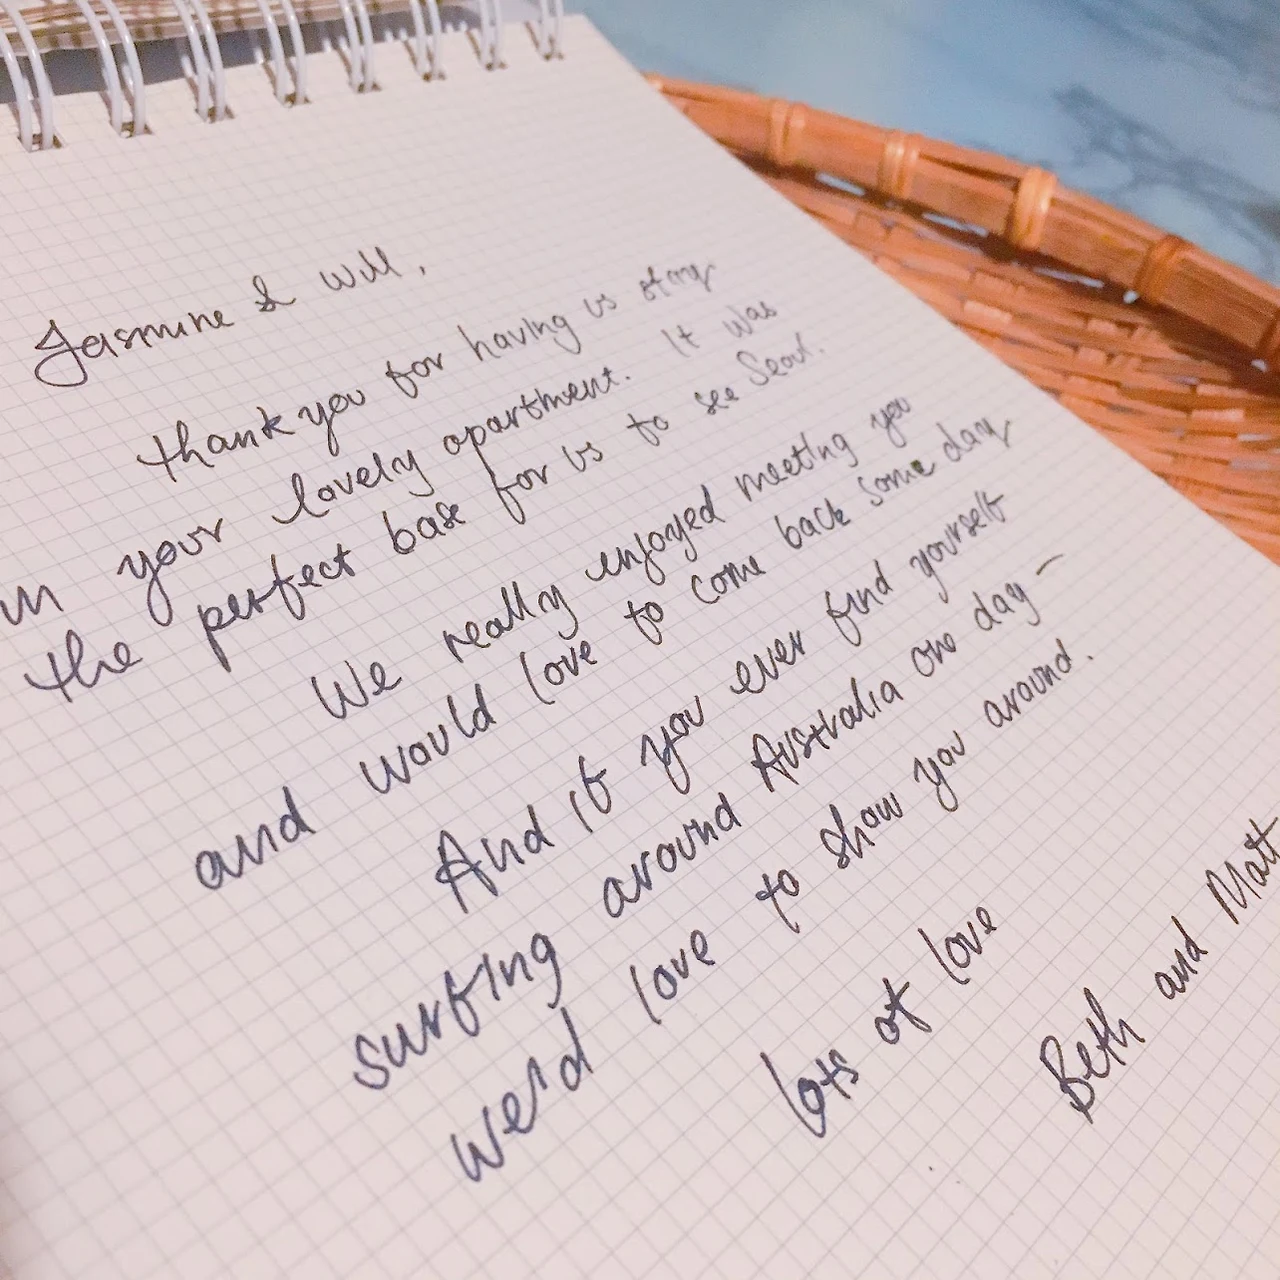 Jasmine & Will,
thank you for having us stay
in your lovely apartment. It was
the perfect base for us to see Seoul.
We really enjoyed meeting you
and would love to come back some day
And if you ever find yourself
surfing around Australia one day –
we'd love to show you around.
lots of love
Beth and Matt